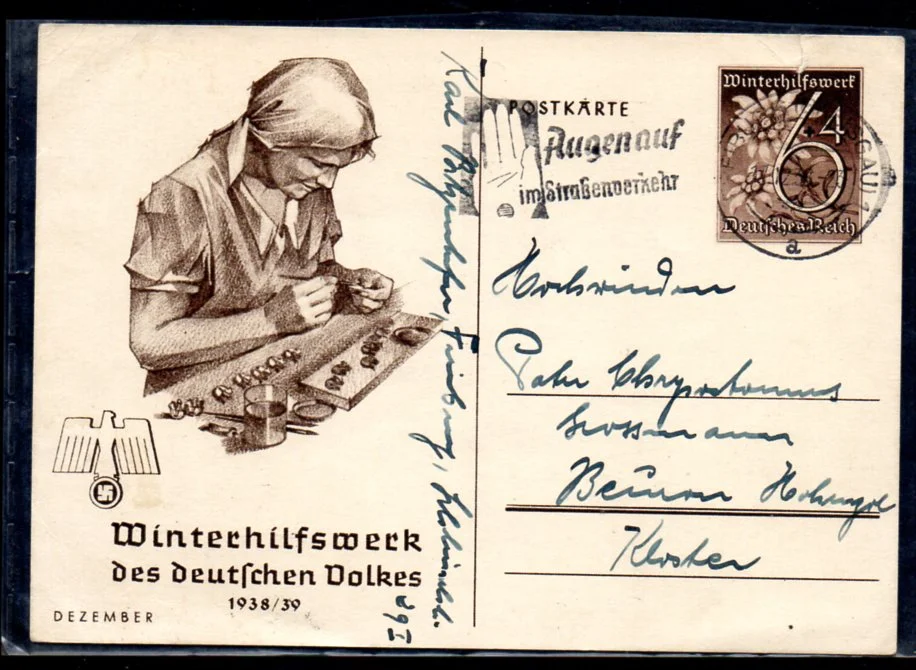 POSTKARTE
Augen auf
im Straßenverkehr
Winterhilfswerk
6+4
Deutsches Reich
a
Hochwürden
Pater Chrysostomus
Grossmann
Beuron Hohenzoll
Kloster
Karl Freiburg,
Winterhilfswerk
des deutschen Volkes
1938/39
DEZEMBER